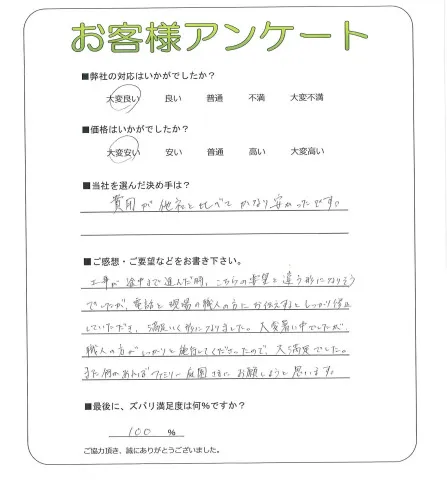 お客様アンケート
■弊社の対応はいかがでしたか?
大変良い 良い 普通 不満 大変不満
■価格はいかがでしたか?
大変安い 安い 普通 高い 大変高い
■当社を選んだ決め手は?
費用が他社と比べてかなり安かったです。
■ご感想・ご要望などをお書き下さい。
工事が途中まで進んだ時、こちらの希望と違う形になりそう
でしたが、電話と現場の職人の方にお伝えするとしっかり修正
していただき、満足いく形になりました。大変暑い中でしたが、
職人の方がしっかりと施行してくださったので、大満足でした。
また何かあればファミリー庭園さまにお願しようと思います。
■最後に、ズバリ満足度は何%ですか?
100 %
ご協力頂き、誠にありがとうございました。